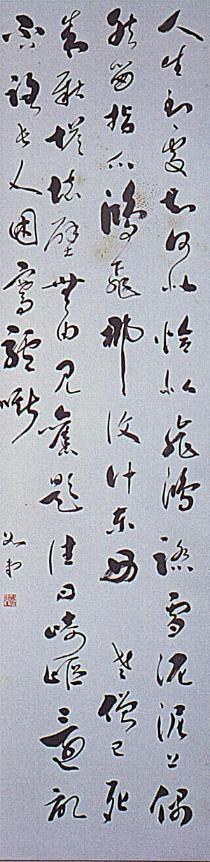 人生到處知何似恰似飛鴻踏雪泥泥上偶
然留指爪鴻飛那復計東西老僧已死
成新塔壞壁無由見舊題往日崎嶇還記
否路長人困蹇驢嘶